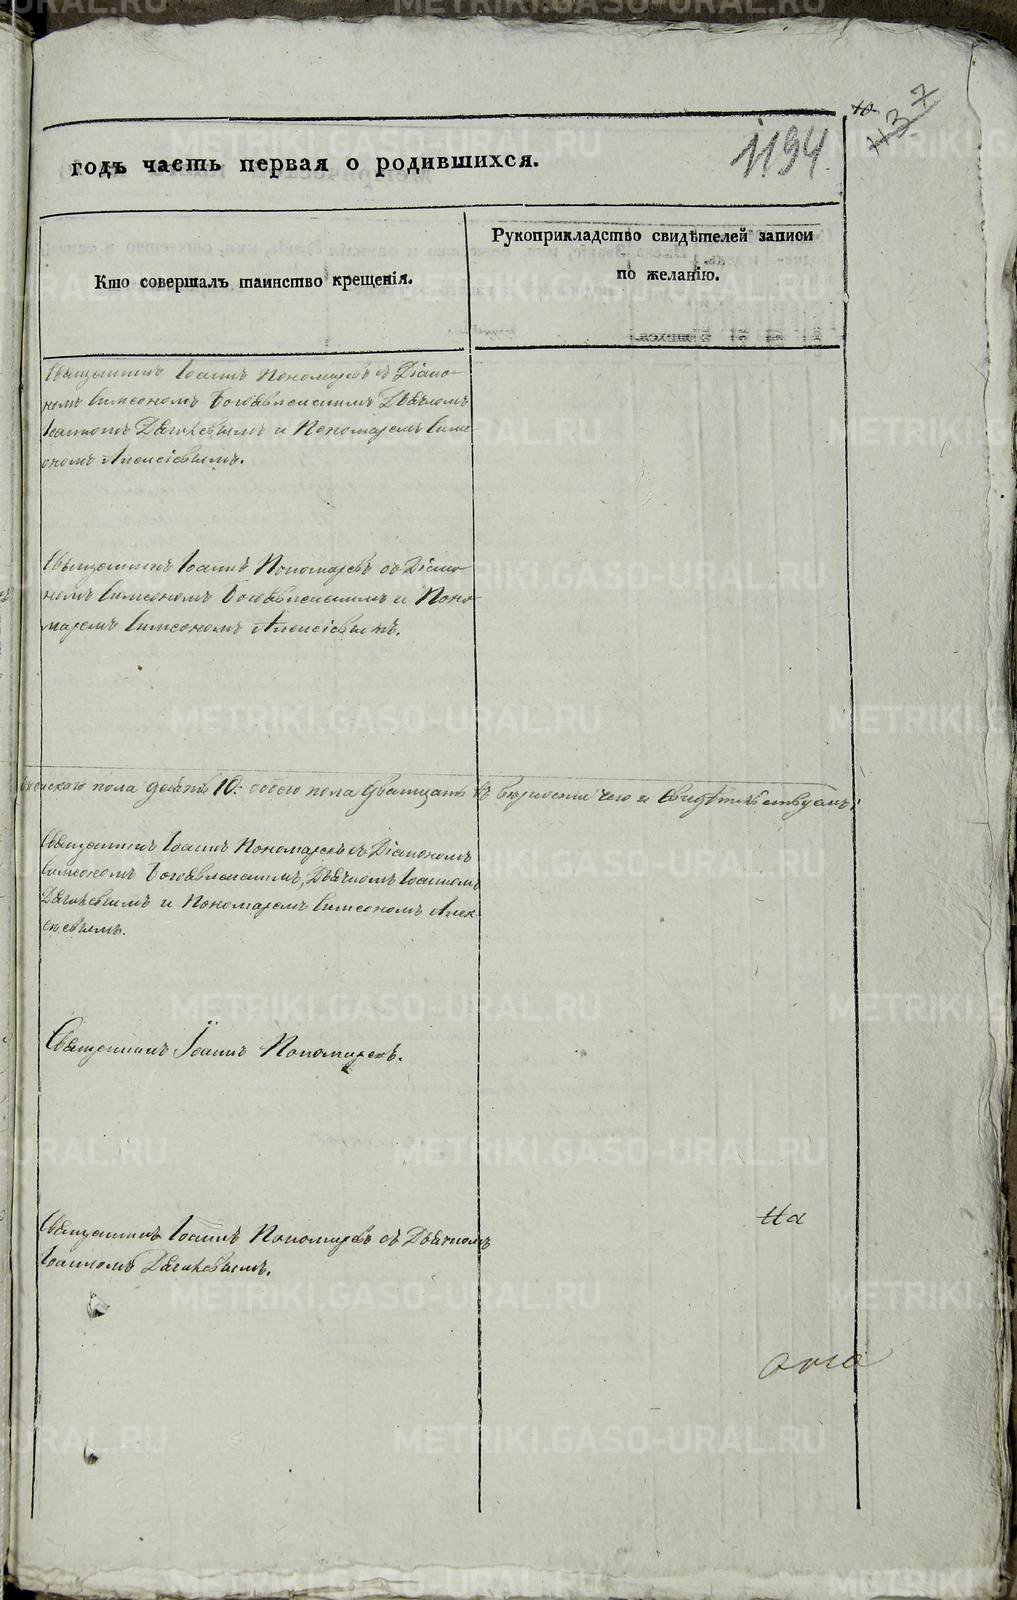 годъ часть первая о родившихся.
1194
437
Кто совершалъ таинство крещенія.
Рукоприкладство свидѣтелей записи
по желанію.
Священникъ Іоаннъ Пономаревъ съ Діако-
номъ Симеономъ Богоявленскимъ Дьячкомъ
Іоанномъ Дягилевымъ и Пономаремъ Симе-
ономъ Алексіевымъ.
Священникъ Іоаннъ Пономаревъ съ Діако-
номъ Симеономъ Богоявленскимъ и Поно-
маремъ Симеономъ Алексіевымъ.
женскаго пола девять 10: обоего пола двадцать въ вѣрности чего и свидѣтельствуемъ:
Священникъ Іоаннъ Пономаревъ съ Діакономъ
Симеономъ Богоявленскимъ, Дьячкомъ Іоанномъ
Дягилевымъ и Пономаремъ Симеономъ Алек-
сѣевымъ.
Священникъ Іоаннъ Пономаревъ.
Священникъ Іоаннъ Пономаревъ съ Дьячкомъ
Іоанномъ Дягилевымъ.
На
METRIKI.GASO-URAL.RU